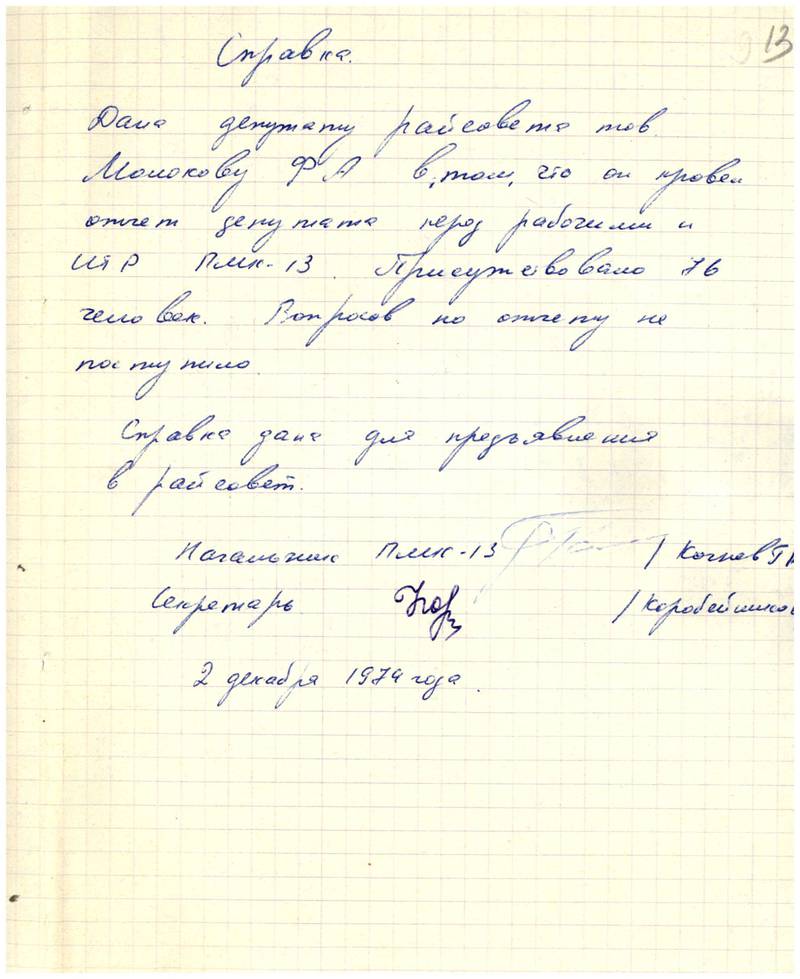 13
Справка.
Дана депутату райсовета тов.
Молокову Ф А в, том, что он провел
отчет депутата перед рабочими и
ИТР ПМК-13. Присутствовало 76
человек. Вопросов по отчету не
поступило.
Справка дана для предъявления
в райсовет.
Начальник ПМК-13 /
Секретарь /Коробейников
2 декабря 1974 года.